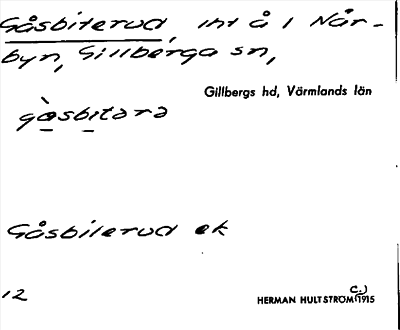 Gåsbiterud, int å i Når-
byn, Gillberga sn,
Gillbergs hd, Värmlands län
gåsbitərə
Gåsbiterud ek
12
HERMAN HULTSTRÖM (C.) 1915